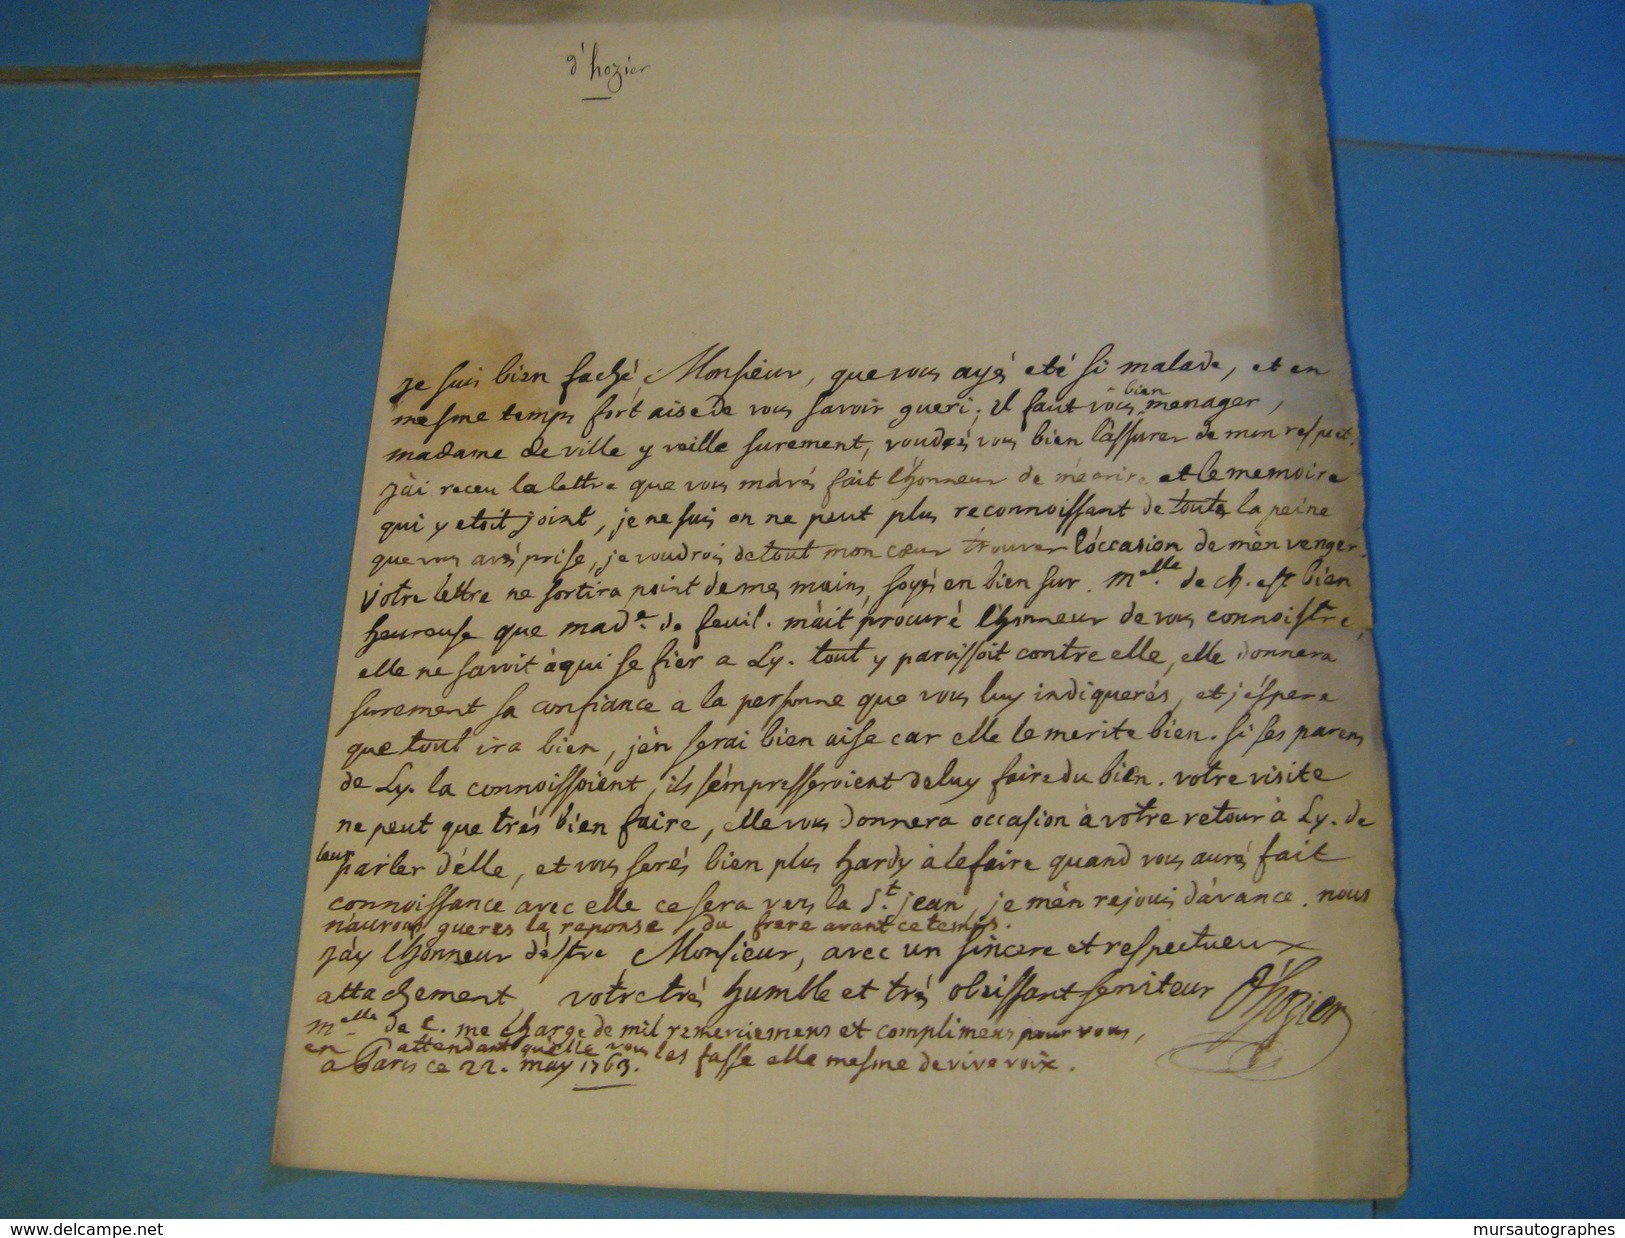 d'hozier
je suis bien faché, Monsieur, que vous ayés eté si malade, et en
mesme temps fort aise de vous savoir gueri; il faut vous bien menager,
madame de ville y veille surement, voudrés vous bien l'assurer de mon respect.
j'ai receu la lettre que vous m'avés fait l'honneur de m'ecrire et le memoire
qui y etoit joint, je ne suis on ne peut plus reconnoissant de toute la peine
que vous avés prise, je voudrois de tout mon cœur trouver l'occasion de m'en venger.
votre lettre ne sortira point de mes mains, soyés en bien sur. Melle. de ch. est bien
heureuse que made. de feuil. m'ait procuré l'honneur de vous connoistre,
elle ne savoit à qui se fier a Ly. tout y paroissoit contre elle, elle donnera
surement sa confiance a la personne que vous luy indiquerés, et j'espere
que tout ira bien, j'en serai bien aise car elle le merite bien. si ses parens
de Ly. la connoissoient, ils s'empresseroient de luy faire du bien. votre visite
ne peut que trés bien faire, elle vous donnera occasion à votre retour à Ly. de
leur parler d'elle, et vous serés bien plus hardy à le faire quand vous aurés fait
connoissance avec elle ce sera vers la St. jean, je m'en rejouis d'avance. nous
n'aurons gueres la reponse du frere avant ce temps.
j'ay l'honneur d'estre Monsieur, avec un sincere et respectueux
attachement votre trés humble et trés obeissant serviteur D'hozier
melle. de C. me charge de mil remerciemens et complimens pour vous,
en attendant qu'elle vous les fasse elle mesme de vive voix.
a Paris ce 22. may 1763.
www.delcampe.net
mursautographes